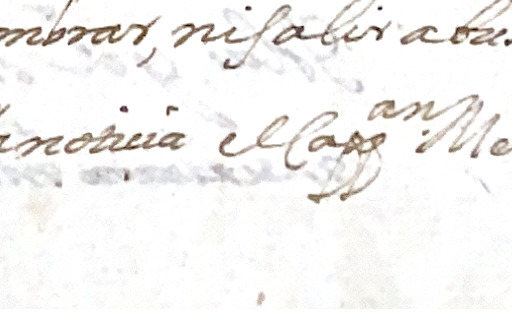 mbrar, ni salir a bus
la noticia el Capp.an Me